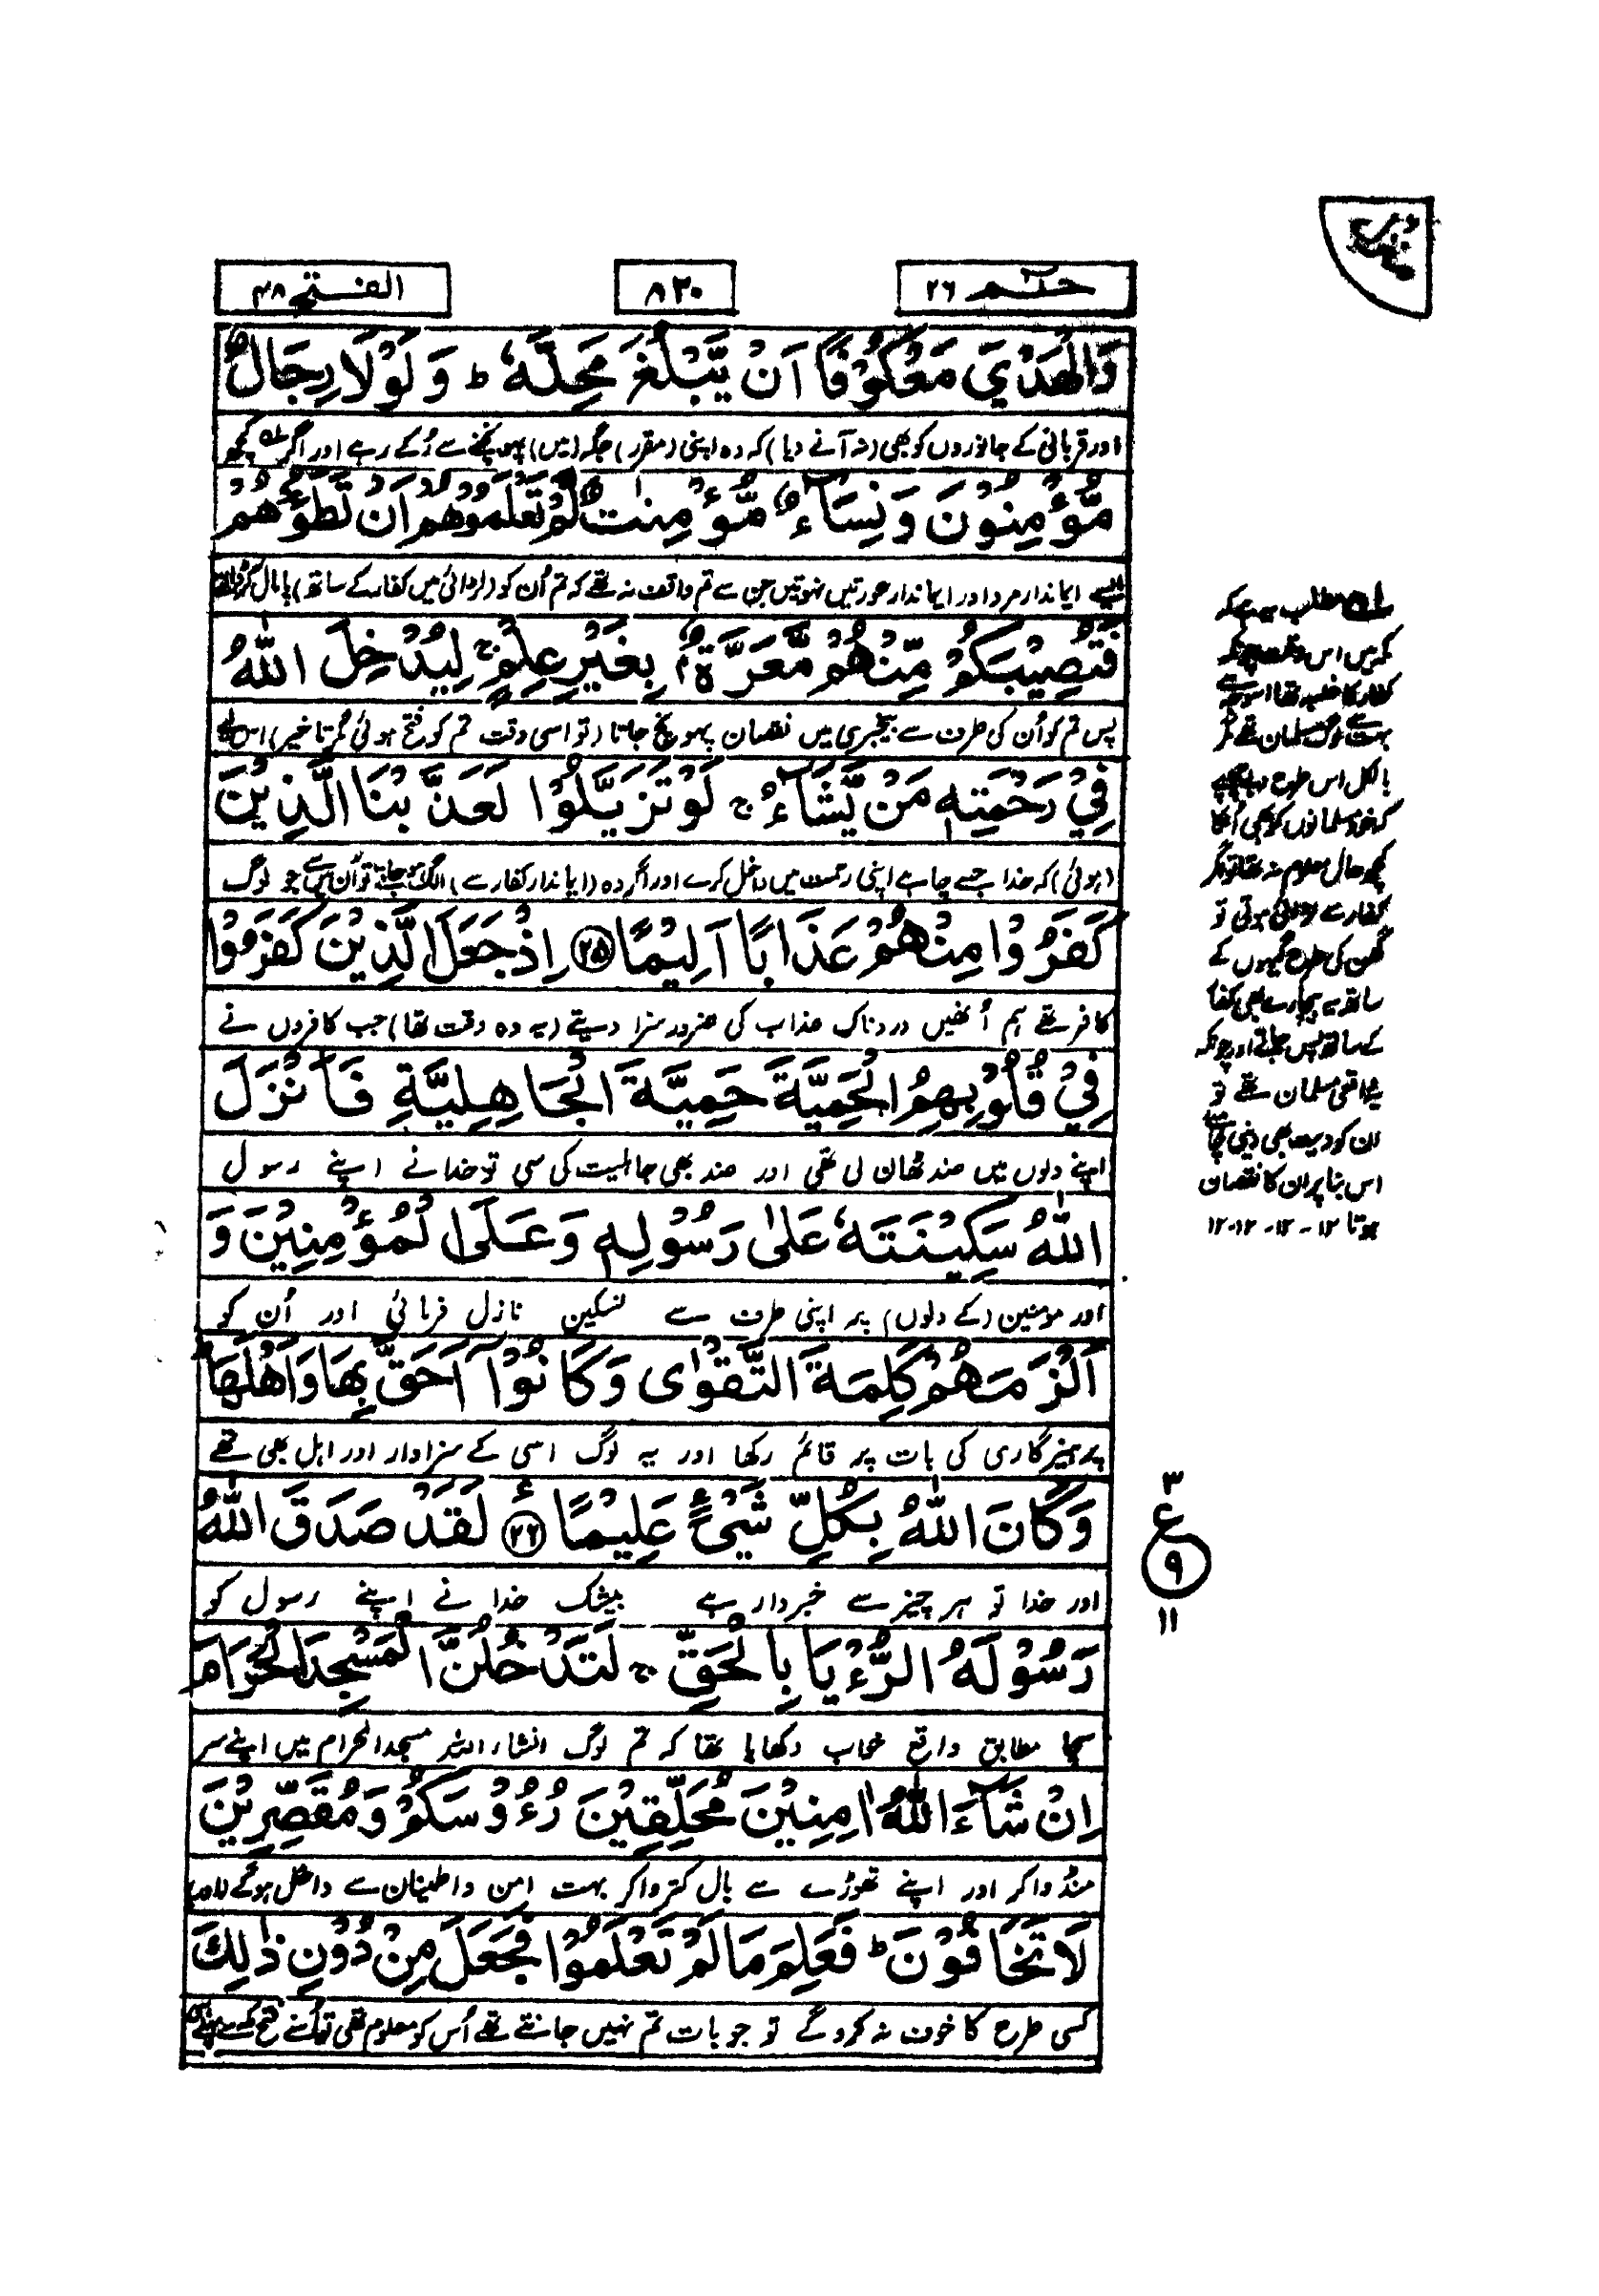 حٰمٓ ٢٦
٨٢٠
الفتح ٤٨
وَالْهَدْيَ مَعْكُوْفًا اَنْ يَّبْلُغَ مَحِلَّهٗ ؕ وَلَوْلَا رِجَالٌ
اور قربانی کے جانوروں کو بھی (نہ آنے دیا) کہ وہ اپنی (مقرر) جگہ (میں) پہونچنے سے رُکے رہے اور اگر کچھ
مُّؤْمِنُوْنَ وَنِسَآءٌ مُّؤْمِنٰتٌ لَّمْ تَعْلَمُوْهُمْ اَنْ تَطَـُٔوْهُمْ
ایسے ایماندار مرد اور ایماندار عورتیں نہوتیں جن سے تم واقف نہ تھے کہ تم اُن کو (لڑائی میں کفار کے ساتھ) پامال کر ڈالتے
فَتُصِيْبَكُمْ مِّنْهُمْ مَّعَرَّةٌۢ بِغَيْرِ عِلْمٍ ۚ لِيُدْخِلَ اللّٰهُ
پس تم کو اُن کی طرف سے بیخبری میں نقصان پہونچ جاتا (تو اسی وقت تم کو فتح ہوئی مگر تاخیر) اس لئے
فِيْ رَحْمَتِهٖ مَنْ يَّشَآءُ ۚ لَوْ تَزَيَّلُوْا لَعَذَّبْنَا الَّذِيْنَ
(ہوئی) کہ خدا جسے چاہے اپنی رحمت میں داخل کرے اور اگر وہ (ایماندار کفار سے) الگ ہو جاتے تو اُن میں سے جو لوگ
كَفَرُوْا مِنْهُمْ عَذَابًا اَلِيْمًا ﴿٢٥﴾ اِذْ جَعَلَ الَّذِيْنَ كَفَرُوْا
کافر تھے ہم اُنھیں دردناک عذاب کی ضرور سزا دیتے (یہ وہ وقت تھا) جب کافروں نے
فِيْ قُلُوْبِهِمُ الْحَمِيَّةَ حَمِيَّةَ الْجَاهِلِيَّةِ فَاَنْزَلَ
اپنے دلوں میں ضد ٹھان لی تھی اور ضد بھی جاہلیت کی سی تو خدا نے اپنے رسول
اللّٰهُ سَكِيْنَتَهٗ عَلٰى رَسُوْلِهٖ وَعَلَى الْمُؤْمِنِيْنَ وَ
اور مومنین (کے دلوں) پر اپنی طرف سے تسکین نازل فرمائی اور اُن کو
اَلْزَمَهُمْ كَلِمَةَ التَّقْوٰى وَكَانُوْٓا اَحَقَّ بِهَا وَاَهْلَهَا ؕ
پرہیزگاری کی بات پر قائم رکھا اور یہ لوگ اسی کے سزاوار اور اہل بھی تھے
وَكَانَ اللّٰهُ بِكُلِّ شَيْءٍ عَلِيْمًا ﴿٢٦﴾ لَقَدْ صَدَقَ اللّٰهُ
اور خدا تو ہر چیز سے خبردار ہے بیشک خدا نے اپنے رسول کو
رَسُوْلَهُ الرُّءْيَا بِالْحَقِّ ۚ لَتَدْخُلُنَّ الْمَسْجِدَ الْحَرَامَ
سچا مطابق واقع خواب دکھایا تھا کہ تم لوگ انشاء اللہ مسجد الحرام میں اپنے سر
اِنْ شَآءَ اللّٰهُ اٰمِنِيْنَ مُحَلِّقِيْنَ رُءُوْسَكُمْ وَمُقَصِّرِيْنَ
منڈواکر اور اپنے تھوڑے سے بال کترواکر بہت امن و اطمینان سے داخل ہوگے
لَا تَخَافُوْنَ ؕ فَعَلِمَ مَا لَمْ تَعْلَمُوْا فَجَعَلَ مِنْ دُوْنِ ذٰلِكَ
کسی طرح کا خوف نہ کروگے تو جو بات تم نہیں جانتے تھے اُس کو معلوم تھی تو اُسنے فتح مکہ سے پہلے
مطلب یہ ہے کہ
کہ میں اس وقت چونکہ
کفار کا غلبہ تھا اس وجہ سے
بہت سے لوگ مسلمان تھے مگر
بالکل اس طرح دبے چھپے
کہ خود مسلمانوں کو بھی اُنکا
کچھ حال معلوم نہ تھا تو اگر
کفار سے لڑائی ہوتی تو
گھن کی طرح گیہوں کے
ساتھ یہ بیچارے بھی کفار
کے ساتھ پس جاتے اور چونکہ
یہ واقعی مسلمان تھے تو
ان کو دیت بھی دینی
اس بنا پر ان کا نقصان
ہوتا ١٢ - ١٢ - ١٢ - ١٢
٣
ع
٩
١١